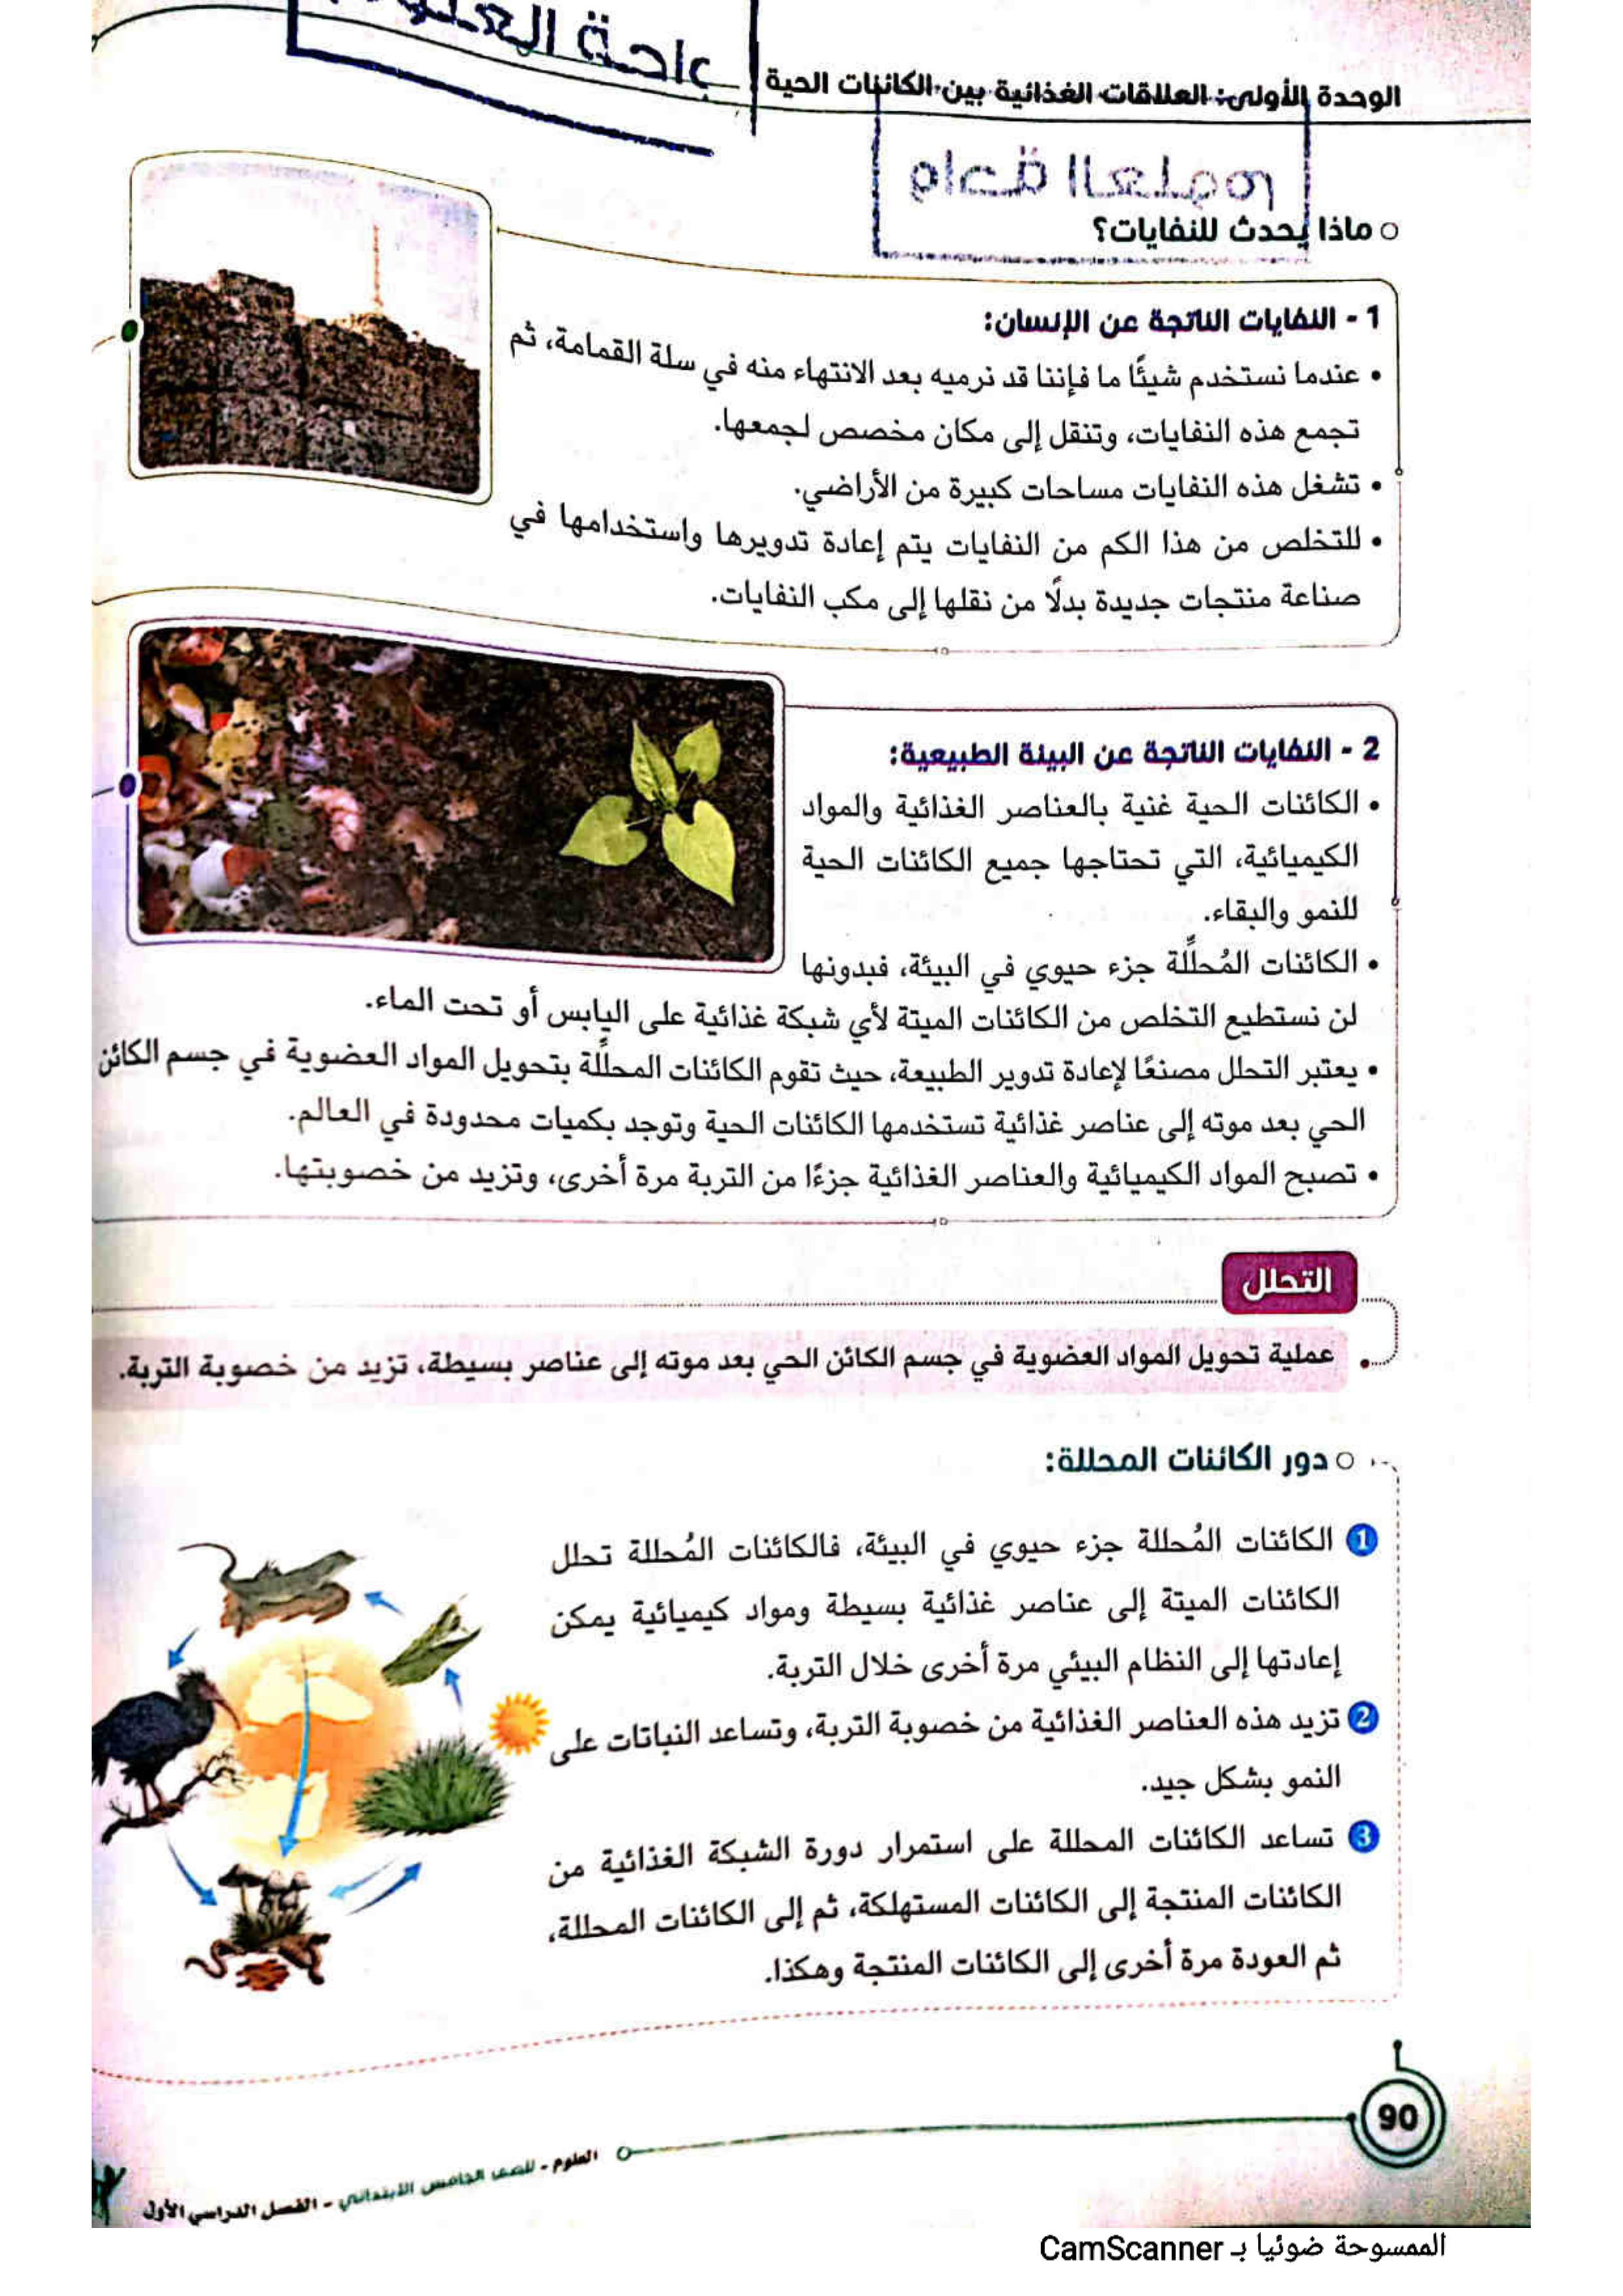 باحة العلوم
الوحدة الأولى: العلاقات الغذائية بين الكائنات الحية
واحة العلوم
ماذا يحدث للنفايات؟
1 - النفايات الناتجة عن الإنسان:
• عندما نستخدم شيئًا ما فإننا قد نرميه بعد الانتهاء منه في سلة القمامة، ثم
تجمع هذه النفايات، وتنقل إلى مكان مخصص لجمعها.
• تشغل هذه النفايات مساحات كبيرة من الأراضي.
• للتخلص من هذا الكم من النفايات يتم إعادة تدويرها واستخدامها في
صناعة منتجات جديدة بدلًا من نقلها إلى مكب النفايات.
2 - النفايات الناتجة عن البيئة الطبيعية:
• الكائنات الحية غنية بالعناصر الغذائية والمواد
الكيميائية، التي تحتاجها جميع الكائنات الحية
للنمو والبقاء.
• الكائنات المُحلِّلة جزء حيوي في البيئة، فبدونها
لن نستطيع التخلص من الكائنات الميتة لأي شبكة غذائية على اليابس أو تحت الماء.
• يعتبر التحلل مصنعًا لإعادة تدوير الطبيعة، حيث تقوم الكائنات المحللِّة بتحويل المواد العضوية في جسم الكائن
الحي بعد موته إلى عناصر غذائية تستخدمها الكائنات الحية وتوجد بكميات محدودة في العالم.
• تصبح المواد الكيميائية والعناصر الغذائية جزءًا من التربة مرة أخرى، وتزيد من خصوبتها.
التحلل
• عملية تحويل المواد العضوية في جسم الكائن الحي بعد موته إلى عناصر بسيطة، تزيد من خصوبة التربة.
دور الكائنات المحللة:
1 الكائنات المُحللة جزء حيوي في البيئة، فالكائنات المُحللة تحلل
الكائنات الميتة إلى عناصر غذائية بسيطة ومواد كيميائية يمكن
إعادتها إلى النظام البيئي مرة أخرى خلال التربة.
2 تزيد هذه العناصر الغذائية من خصوبة التربة، وتساعد النباتات على
النمو بشكل جيد.
3 تساعد الكائنات المحللة على استمرار دورة الشبكة الغذائية من
الكائنات المنتجة إلى الكائنات المستهلكة، ثم إلى الكائنات المحللة،
ثم العودة مرة أخرى إلى الكائنات المنتجة وهكذا.
90
العلوم - للصف الخامس الابتدائي - الفصل الدراسي الأول
الممسوحة ضوئيا بـ CamScanner